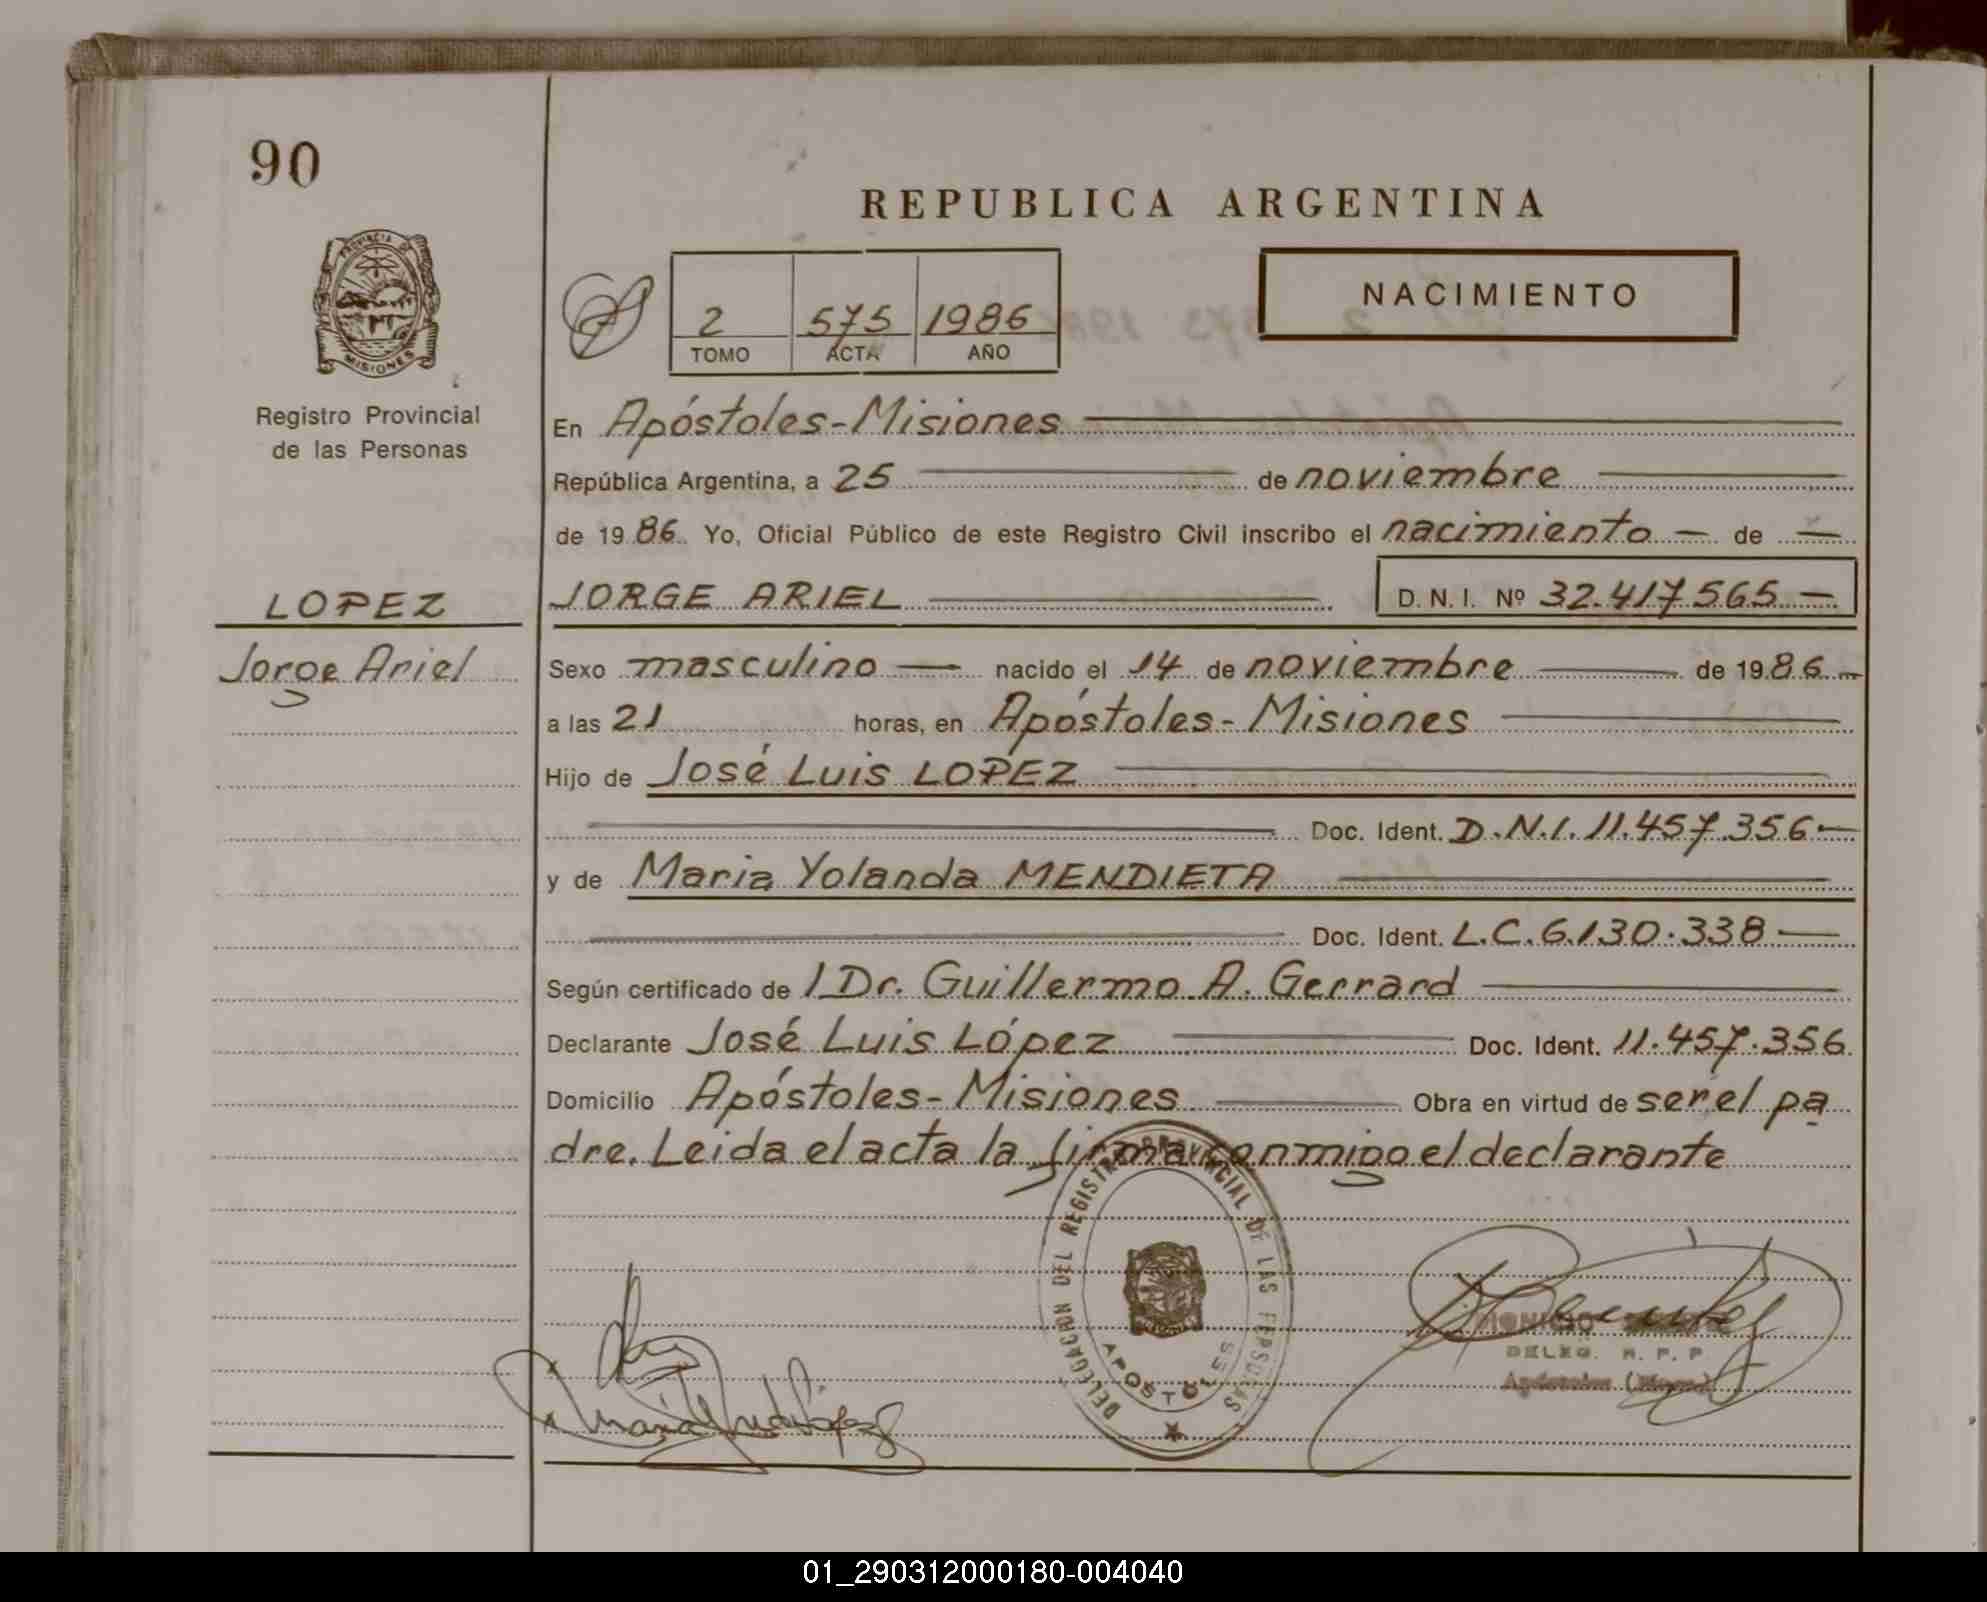 90
REPUBLICA ARGENTINA
PROVINCIA DE
MISIONES
2 575 1986
TOMO ACTA AÑO
NACIMIENTO
Registro Provincial
de las Personas
En Apóstoles-Misiones
República Argentina, a 25 de noviembre
de 1986 Yo, Oficial Público de este Registro Civil inscribo el nacimiento — de —
LOPEZ
JORGE ARIEL D.N.I. Nº 32.417.565 —
Jorge Ariel
Sexo masculino — nacido el 14 de noviembre — de 1986 —
a las 21 horas, en Apóstoles - Misiones
Hijo de José Luis LOPEZ
Doc. Ident. D.N.I. 11.457.356 —
y de Maria Yolanda MENDIETA
Doc. Ident. L.C. 6.130.338 —
Según certificado de l Dr. Guillermo A. Gerrard
Declarante José Luis López Doc. Ident. 11.457.356
Domicilio Apóstoles - Misiones Obra en virtud de ser el pa
dre. Leida el acta la firma conmigo el declarante
DELEGACION DEL REGISTRO PROVINCIAL DE LAS PERSONAS
APOSTOLES
DIONICIO
DELEG. R. P. P.
Apóstoles (Mnes.)
01_290312000180-004040